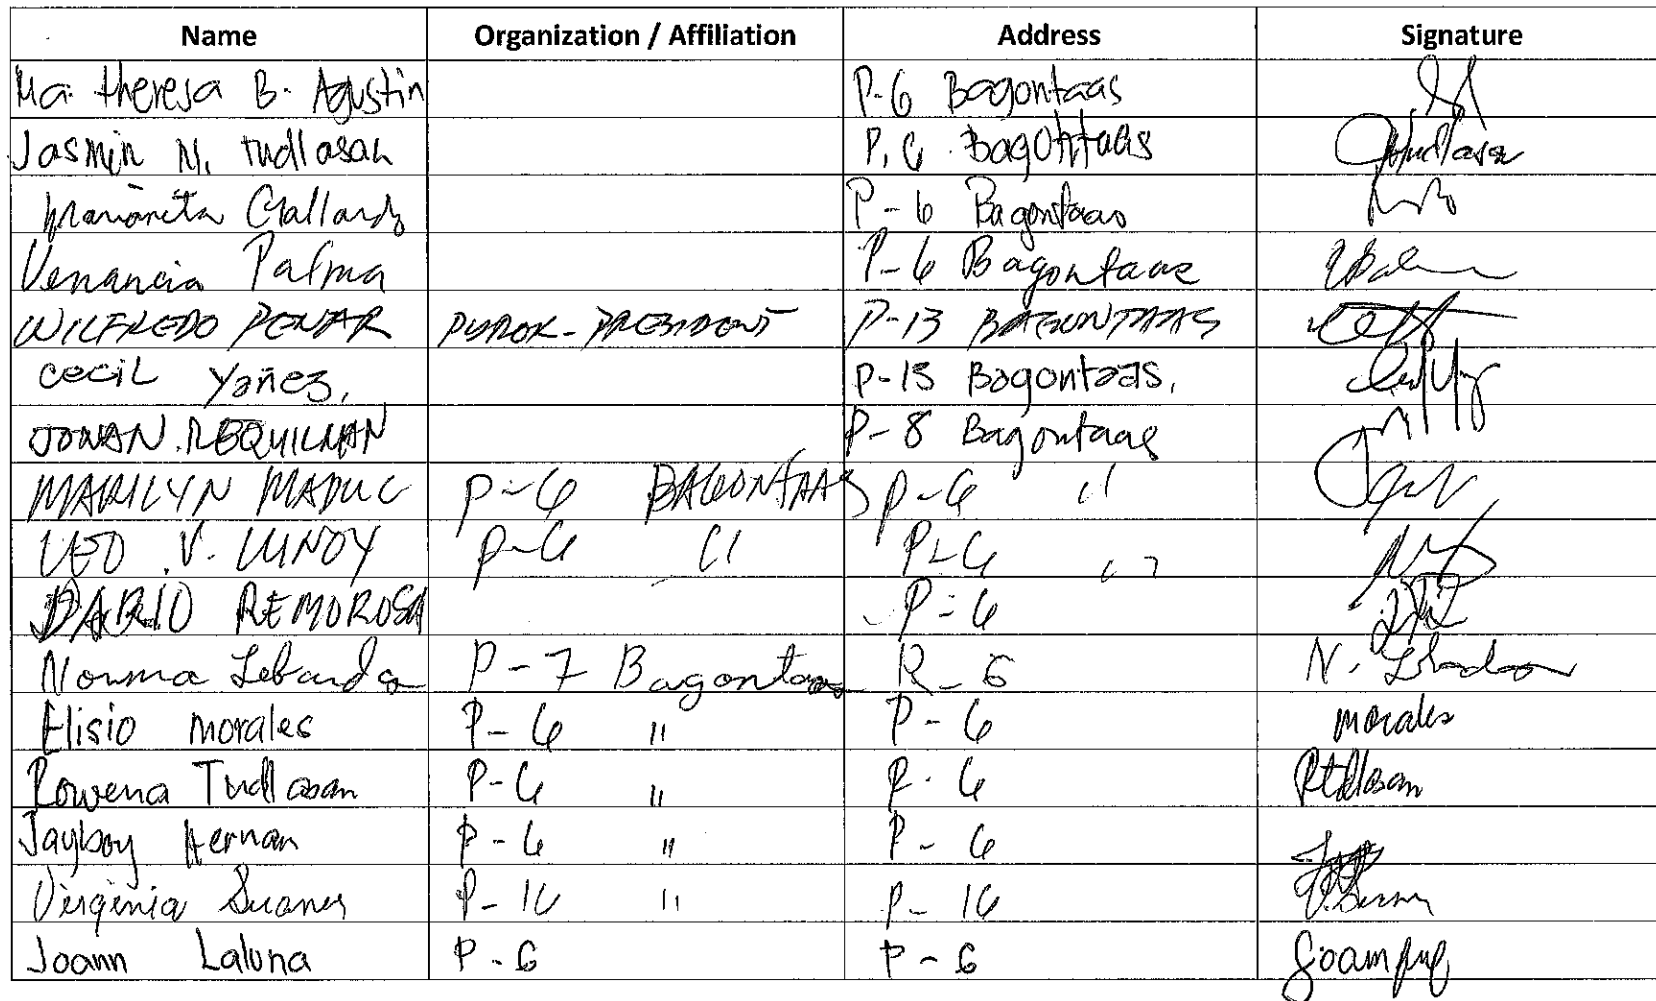 Name Organization / Affiliation Address Signature
Ma. theresa B. Agustin P-6 Bagontaas
Jasmin N. tudlasan P. 6 Bagontaas
Marianeta Gallardo P-6 Bagontaas
Venancia Palma P-6 Bagontaas
WILFREDO PENAR PUROK-PRESIDENT P-13 BAGONTAAS
Cecil Yañez, P-13 Bagontaas,
P-8 Bagontaas
MARILYN MADUC P-6 BAGONTAAS P-6 "
LEO V. P-6 " P-6 "
DARIO REMOROSA P-6
Norma P-7 Bagontaas P-6 N.
Elisio morales P-6 " P-6 morales
Rowena Tudlasan P-6 " P-6
Jayboy Hernan P-6 " P-6
Virginia P-16 " P-16
Joann Laluna P-6 P-6